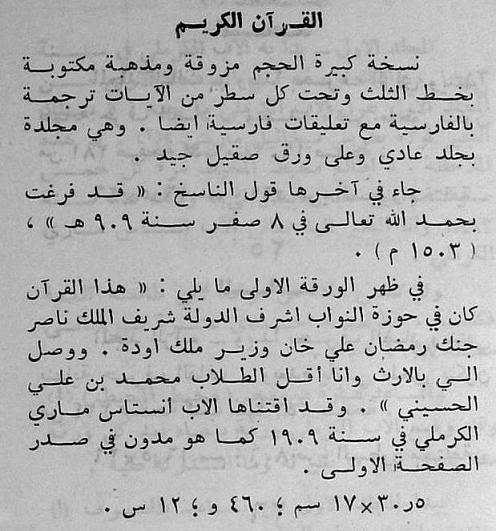 القرآن الكريم
نسخة كبيرة الحجم مزوقة ومذهبة مكتوبة
بخط الثلث وتحت كل سطر من الآيات ترجمة
بالفارسية مع تعليقات فارسية ايضا . وهي مجلدة
بجلد عادي وعلى ورق صقيل جيد .
جاء في آخرها قول الناسخ : « قد فرغت
بحمد الله تعالى في ٨ صفر سنة ٩٠٩ هـ » ،
( ١٥٠٣ م ) .
في ظهر الورقة الاولى ما يلي : « هذا القرآن
كان في حوزة النواب اشرف الدولة شريف الملك ناصر
جنك رمضان علي خان وزير ملك اودة . ووصل
الي بالارث وانا أقل الطلاب محمد بن علي
الحسيني » . وقد اقتناها الاب أنستاس ماري
الكرملي في سنة ١٩٠٩ كما هو مدون في صدر
الصفحة الاولى .
٣٠ر٥×١٧ سم ؛ ٤٦٠ و ؛ ١٢ س .